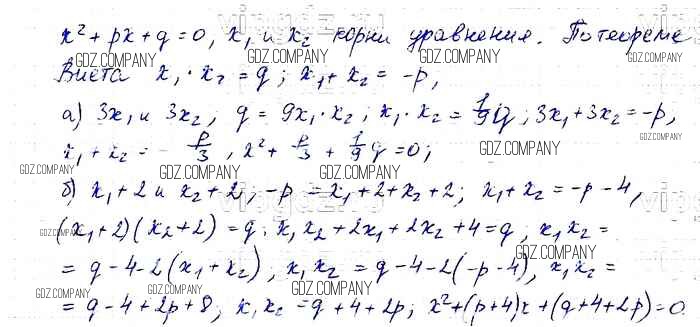 x² + px + q = 0, x₁ и x₂ корни уравнения. По теореме
Виета x₁ · x₂ = q; x₁ + x₂ = -p,
а) 3x₁ и 3x₂, q = 9x₁ · x₂; x₁ · x₂ = 1/9 q; 3x₁ + 3x₂ = -p,
x₁ + x₂ = - p/3, x² + p/3 + 1/9 q = 0;
б) x₁ + 2 и x₂ + 2; -p = x₁ + 2 + x₂ + 2; x₁ + x₂ = -p - 4,
(x₁ + 2)(x₂ + 2) = q. x₁x₂ + 2x₁ + 2x₂ + 4 = q, x₁x₂ =
= q - 4 - 2(x₁ + x₂), x₁x₂ = q - 4 - 2(-p - 4), x₁x₂ =
= q - 4 + 2p + 8; x₁x₂ = q + 4 + 2p; x² + (p + 4)x + (q + 4 + 2p) = 0
GDZ.COMPANY
GDZ.COMPANY
GDZ.COMPANY
GDZ.COMPANY
GDZ.COMPANY
GDZ.COMPANY
GDZ.COMPANY
GDZ.COMPANY
GDZ.COMPANY
GDZ.COMPANY
GDZ.COMPANY
GDZ.COMPANY
GDZ.COMPANY